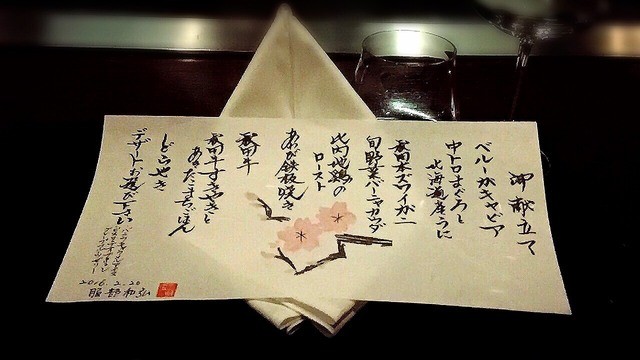 御献立て
ベルーガキャビア
中トロまぐろと
北海道産うに
秋田本ズワイガニ
旬野菜バーニャカウダ
比内地鶏の
ロースト
あわび鉄板焼き
秋田牛
秋田牛すきやきと
あきたこまちごはん
どらやき
デザートお選び下さい
2016.2.20
服部和弘